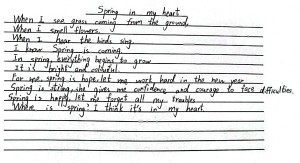 Spring in my heart
When I see grass coming from the ground.
When I smell flowers.
When I hear the birds sing.
I know Spring is coming.
In spring, everything begins to grow
It is bright and colourful.
For me, spring is hope, let me work hard in the new year
Spring is strong, she gives me confidence and courage to face difficulties.
Spring is happy, let me forget all my troubles
Where is spring? I think it's in my heart